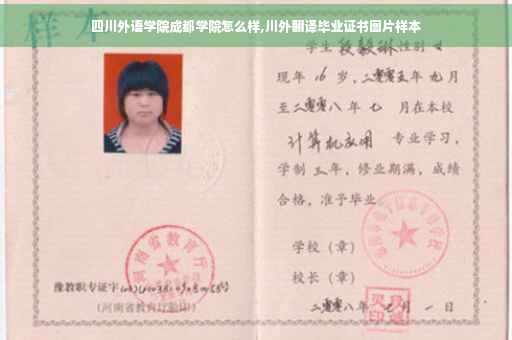 四川外语学院成都学院怎么样,川外翻译毕业证书图片样本
样本
学生段毅琳性别女
现年16岁,二零零五年九月
至二零零八年七月在本校
计算机应用专业学习,
学制三年,修业期满,成绩
合格,准予毕业
学校(章)
校长(章)
二零零八年七月一日
河南省教育厅
豫教职专证字
(河南省教育厅验印)